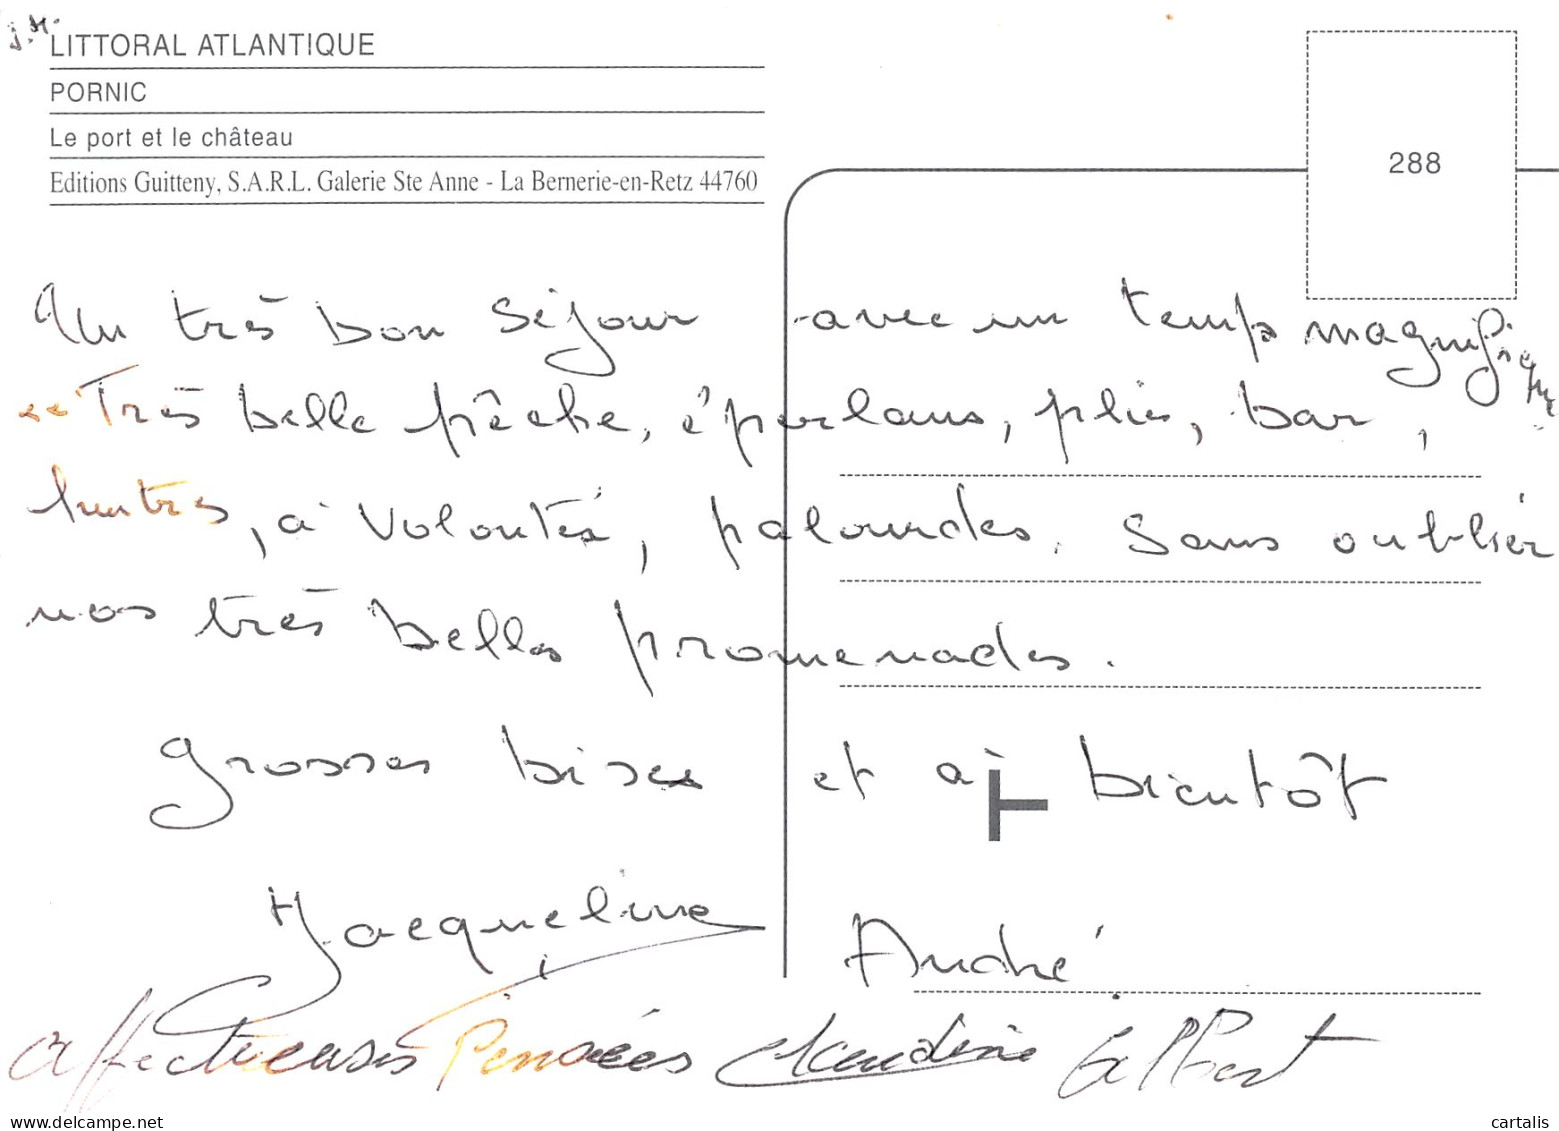 J.M.
LITTORAL ATLANTIQUE
PORNIC
Le port et le château
Editions Guitteny, S.A.R.L. Galerie Ste Anne - La Bernerie-en-Retz 44760
288
Un très bon séjour avec un temps magnifique
Très belle pêche, éperlans, plies, bar,
huitres, à volonté, palourdes. Sans oublier
nos très belles promenades.
Grosses bises et à bientôt
Jacqueline André
affectueuses Pensées Claudine Gilbert
delcampe.net
cartalis